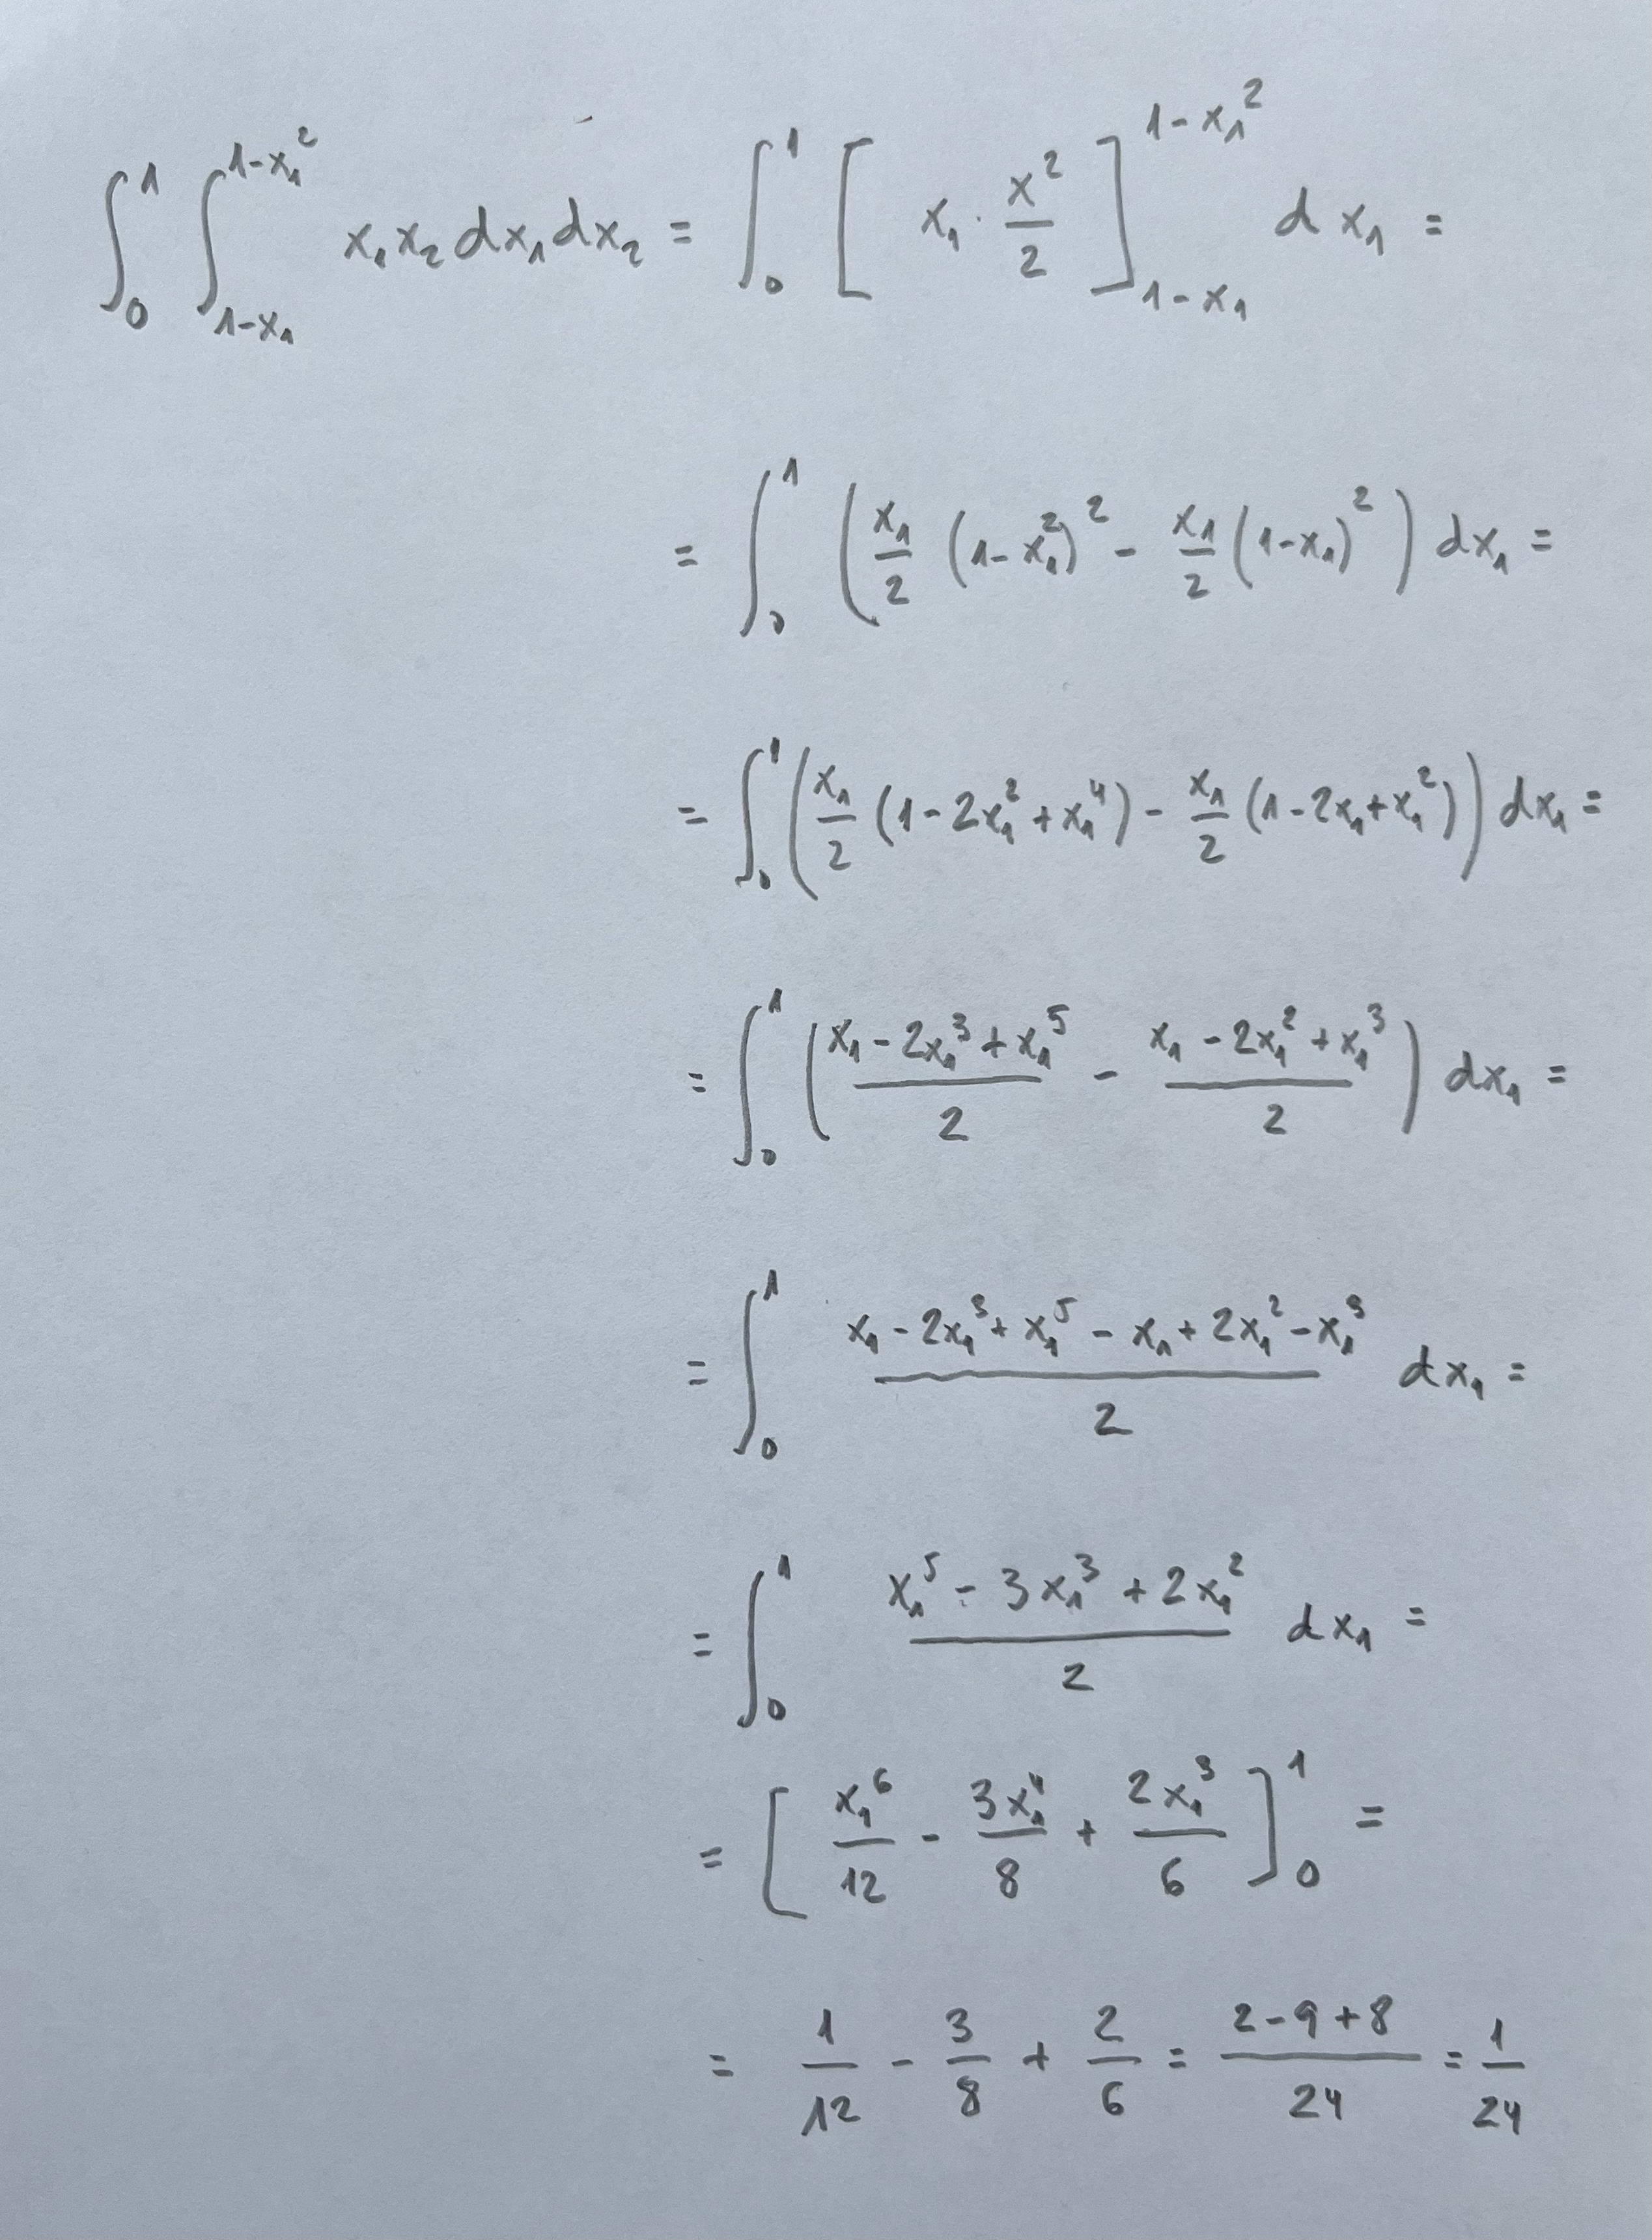 ∫₀¹ ∫_{1-x₁}^{1-x₁²} x₁x₂ dx₁dx₂ = ∫₀¹ [ x₁ · x²/2 ]_{1-x₁}^{1-x₁²} d x₁ =
= ∫₀¹ ( x₁/2 (1-x₁²)² - x₁/2 (1-x₁)² ) dx₁ =
= ∫₀¹ ( x₁/2 (1-2x₁²+x₁⁴) - x₁/2 (1-2x₁+x₁²) ) dx₁ =
= ∫₀¹ ( (x₁-2x₁³+x₁⁵)/2 - (x₁-2x₁²+x₁³)/2 ) dx₁ =
= ∫₀¹ (x₁-2x₁³+x₁⁵-x₁+2x₁²-x₁³)/2 dx₁ =
= ∫₀¹ (x₁⁵-3x₁³+2x₁²)/2 dx₁ =
= [ x₁⁶/12 - 3x₁⁴/8 + 2x₁³/6 ]₀¹ =
= 1/12 - 3/8 + 2/6 = (2-9+8)/24 = 1/24